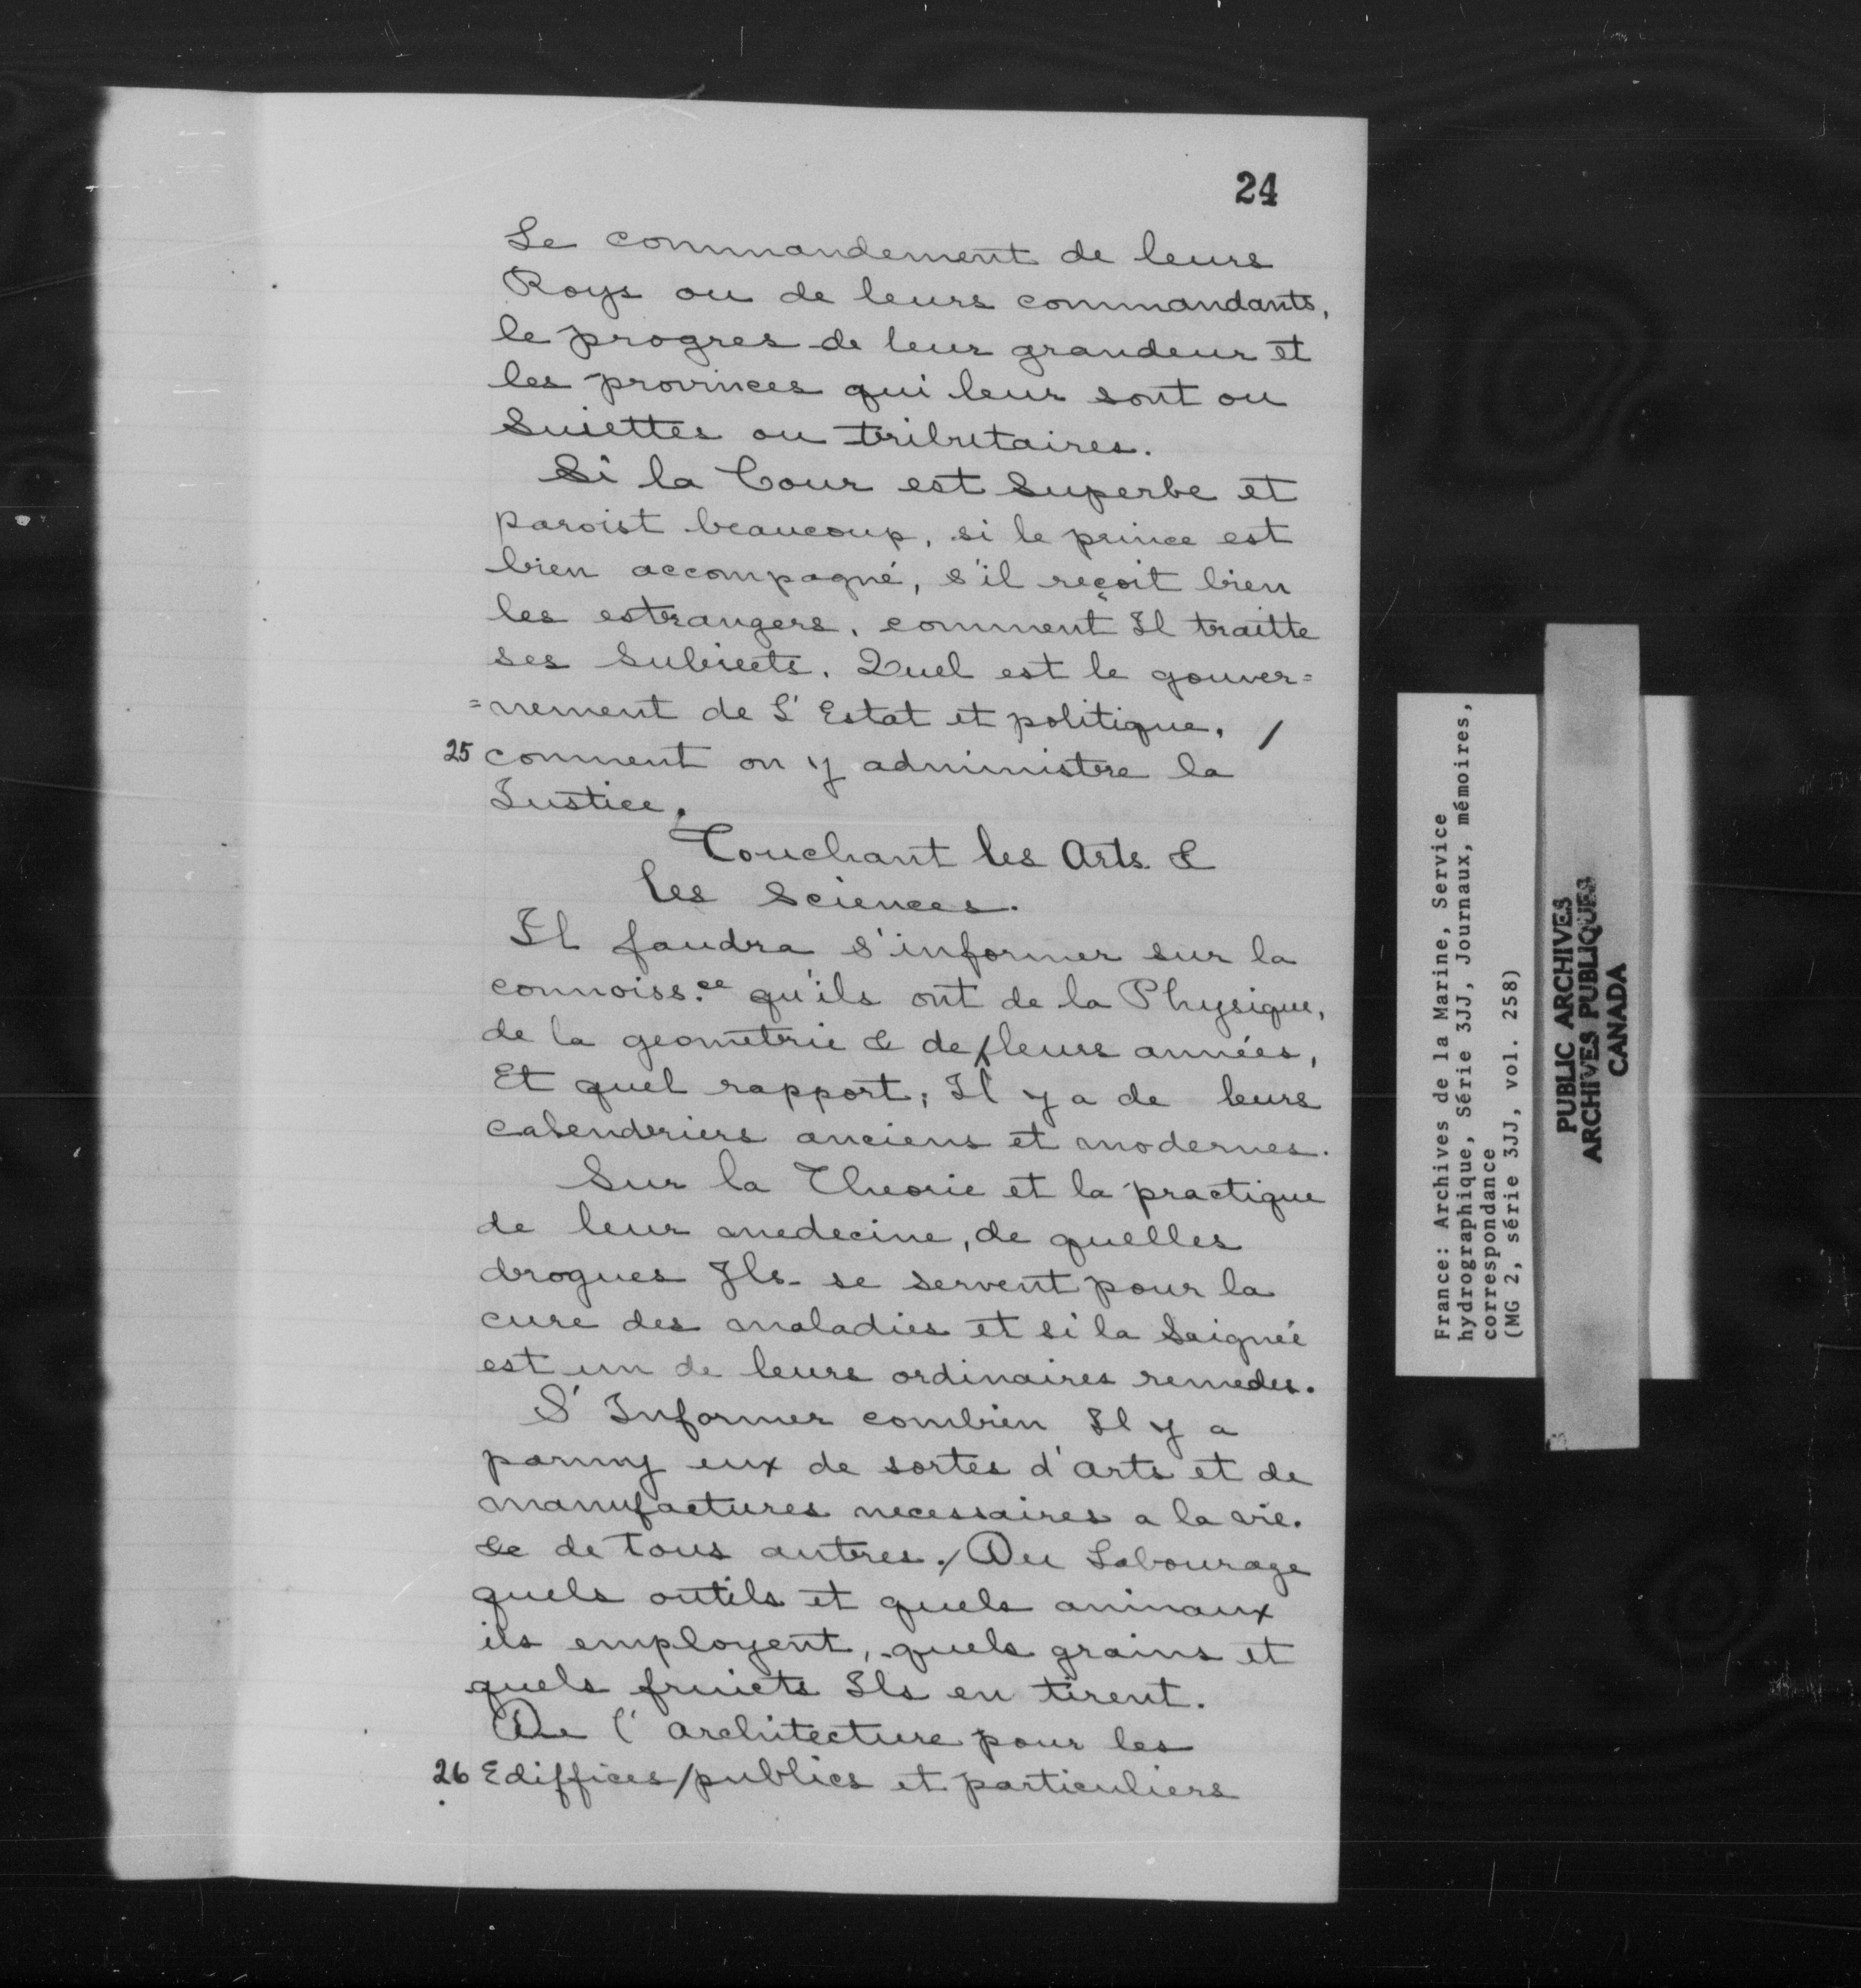 24
Le commandement de leurs
Roys ou de leurs commandants,
le progres de leur grandeur et
les provinces qui leur sont ou
Suiettes ou tributaires.
Si la Cour est Superbe et
paroist beaucoup, si le prince est
bien accompagné, s'il reçoit bien
les estrangers, comment Il traitte
ses Subiects. Quel est le gouver=
=nement de L'Estat et politique, /
25 comment on y administre la
Iustice.
Touchant les Arts &
les Sciences.
Il faudra s'informer sur la
connoiss.ce qu'ils ont de la Physique,
de la geometrie & de leurs années,
Et quel rapport, Il y a de leurs
calendriers anciens et modernes.
Sur la Theorie et la practique
de leur medecine, de quelles
drogues Ils se servent pour la
cure des maladies et si la Saignée
est un de leurs ordinaires remedes.
S'Informer combien Il y a
parmy eux de sortes d'Arts et de
manufactures necessaires a la vie.
& de tous autres./ Du Labourage
quels outils et quels animaux
ils employent, quels grains et
quels fruicts Ils en tirent.
De l'architecture pour les
26 Ediffices/publics et particuliers
France: Archives de la Marine, Service
hydrographique, Série 3JJ, Journaux, mémoires,
correspondance
(MG 2, série 3JJ, vol. 258)
PUBLIC ARCHIVES
ARCHIVES PUBLIQUES
CANADA